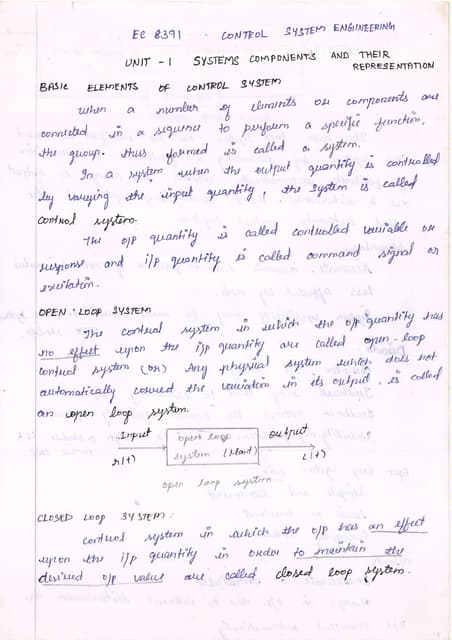 EC 8391 - CONTROL SYSTEM ENGINEERING
UNIT - 1 SYSTEMS COMPONENTS AND THEIR
REPRESENTATION
BASIC ELEMENTS OF CONTROL SYSTEM
When a number of elements or components are
connected in a sequence to perform a specific function,
the group thus formed is called a system.
In a system when the output quantity is controlled
by varying the input quantity, the system is called
control system.
The o/p quantity is called controlled variable or
response and i/p quantity is called command signal or
excitation.
OPEN LOOP SYSTEM
The control system in which the o/p quantity has
no effect upon the i/p quantity are called open-loop
control system (OR) Any physical system which does not
automatically correct the variation in its output, is called
an open loop system.
Input
open loop
system (Plant)
output
r(t)
c(t)
open loop system
CLOSED LOOP SYSTEM:
control system in which the o/p has an effect
upon the i/p quantity in order to maintain the
desired o/p value are called closed loop system.